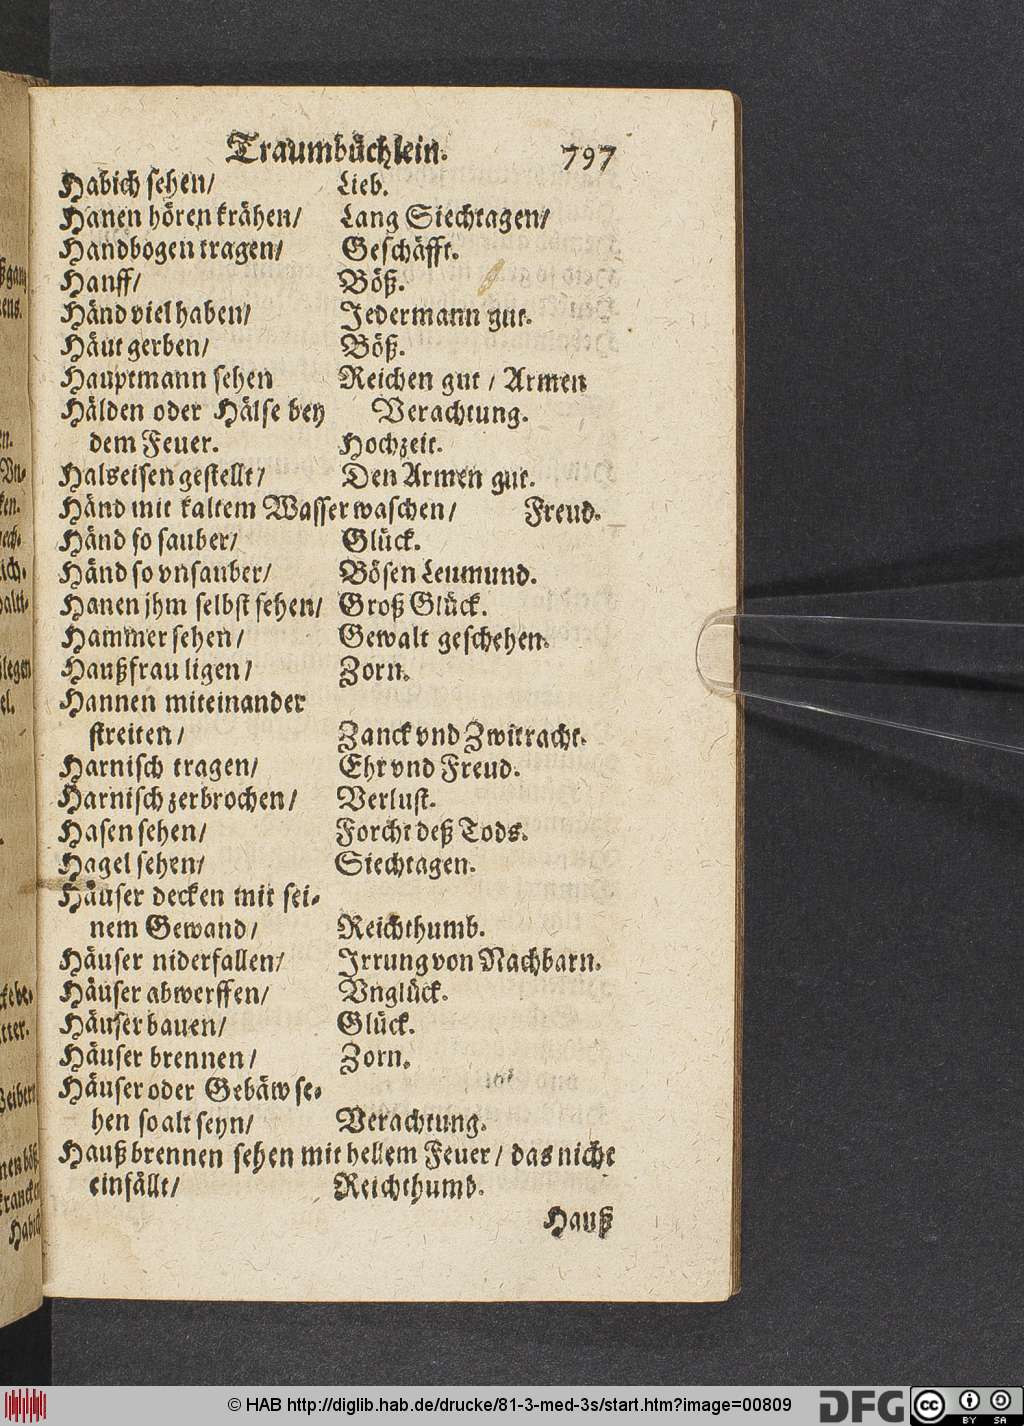 Traumbüchlein. 797
Habich sehen/ Lieb.
Hanen hören krähen/ Lang Siechtagen/
Handbogen tragen/ Geschäfft.
Hanff/ Böß.
Händ viel haben/ Jedermann gut.
Häut gerben/ Böß.
Hauptmann sehen Reichen gut / Armen
Hälden oder Hälse bey Verachtung.
dem Feuer. Hochzeit.
Halseisen gestellt/ Den Armen gut.
Händ mit kaltem Wasser waschen/ Freud.
Händ so sauber/ Glück.
Händ so vnsauber/ Bösen Leumund.
Hanen jhm selbst sehen/ Groß Glück.
Hammer sehen/ Gewalt geschehen.
Haußfrau ligen/ Zorn.
Hannen miteinander
streiten/ Zanck vnd Zwitracht.
Harnisch tragen/ Ehr vnd Freud.
Harnisch zerbrochen/ Verlust.
Hasen sehen/ Forcht deß Tods.
Hagel sehen/ Siechtagen.
Häuser decken mit sei-
nem Gewand/ Reichthumb.
Häuser niderfallen/ Irrung von Nachbarn.
Häuser abwerffen/ Vnglück.
Häuser bauen/ Glück.
Häuser brennen/ Zorn.
Häuser oder Gebäw se-
hen so alt seyn/ Verachtung.
Hauß brennen sehen mit hellem Feuer/ das nicht
einfällt/ Reichthumb.
Hauß
© HAB http://diglib.hab.de/drucke/81-3-med-3s/start.htm?image=00809
DFG cc BY SA